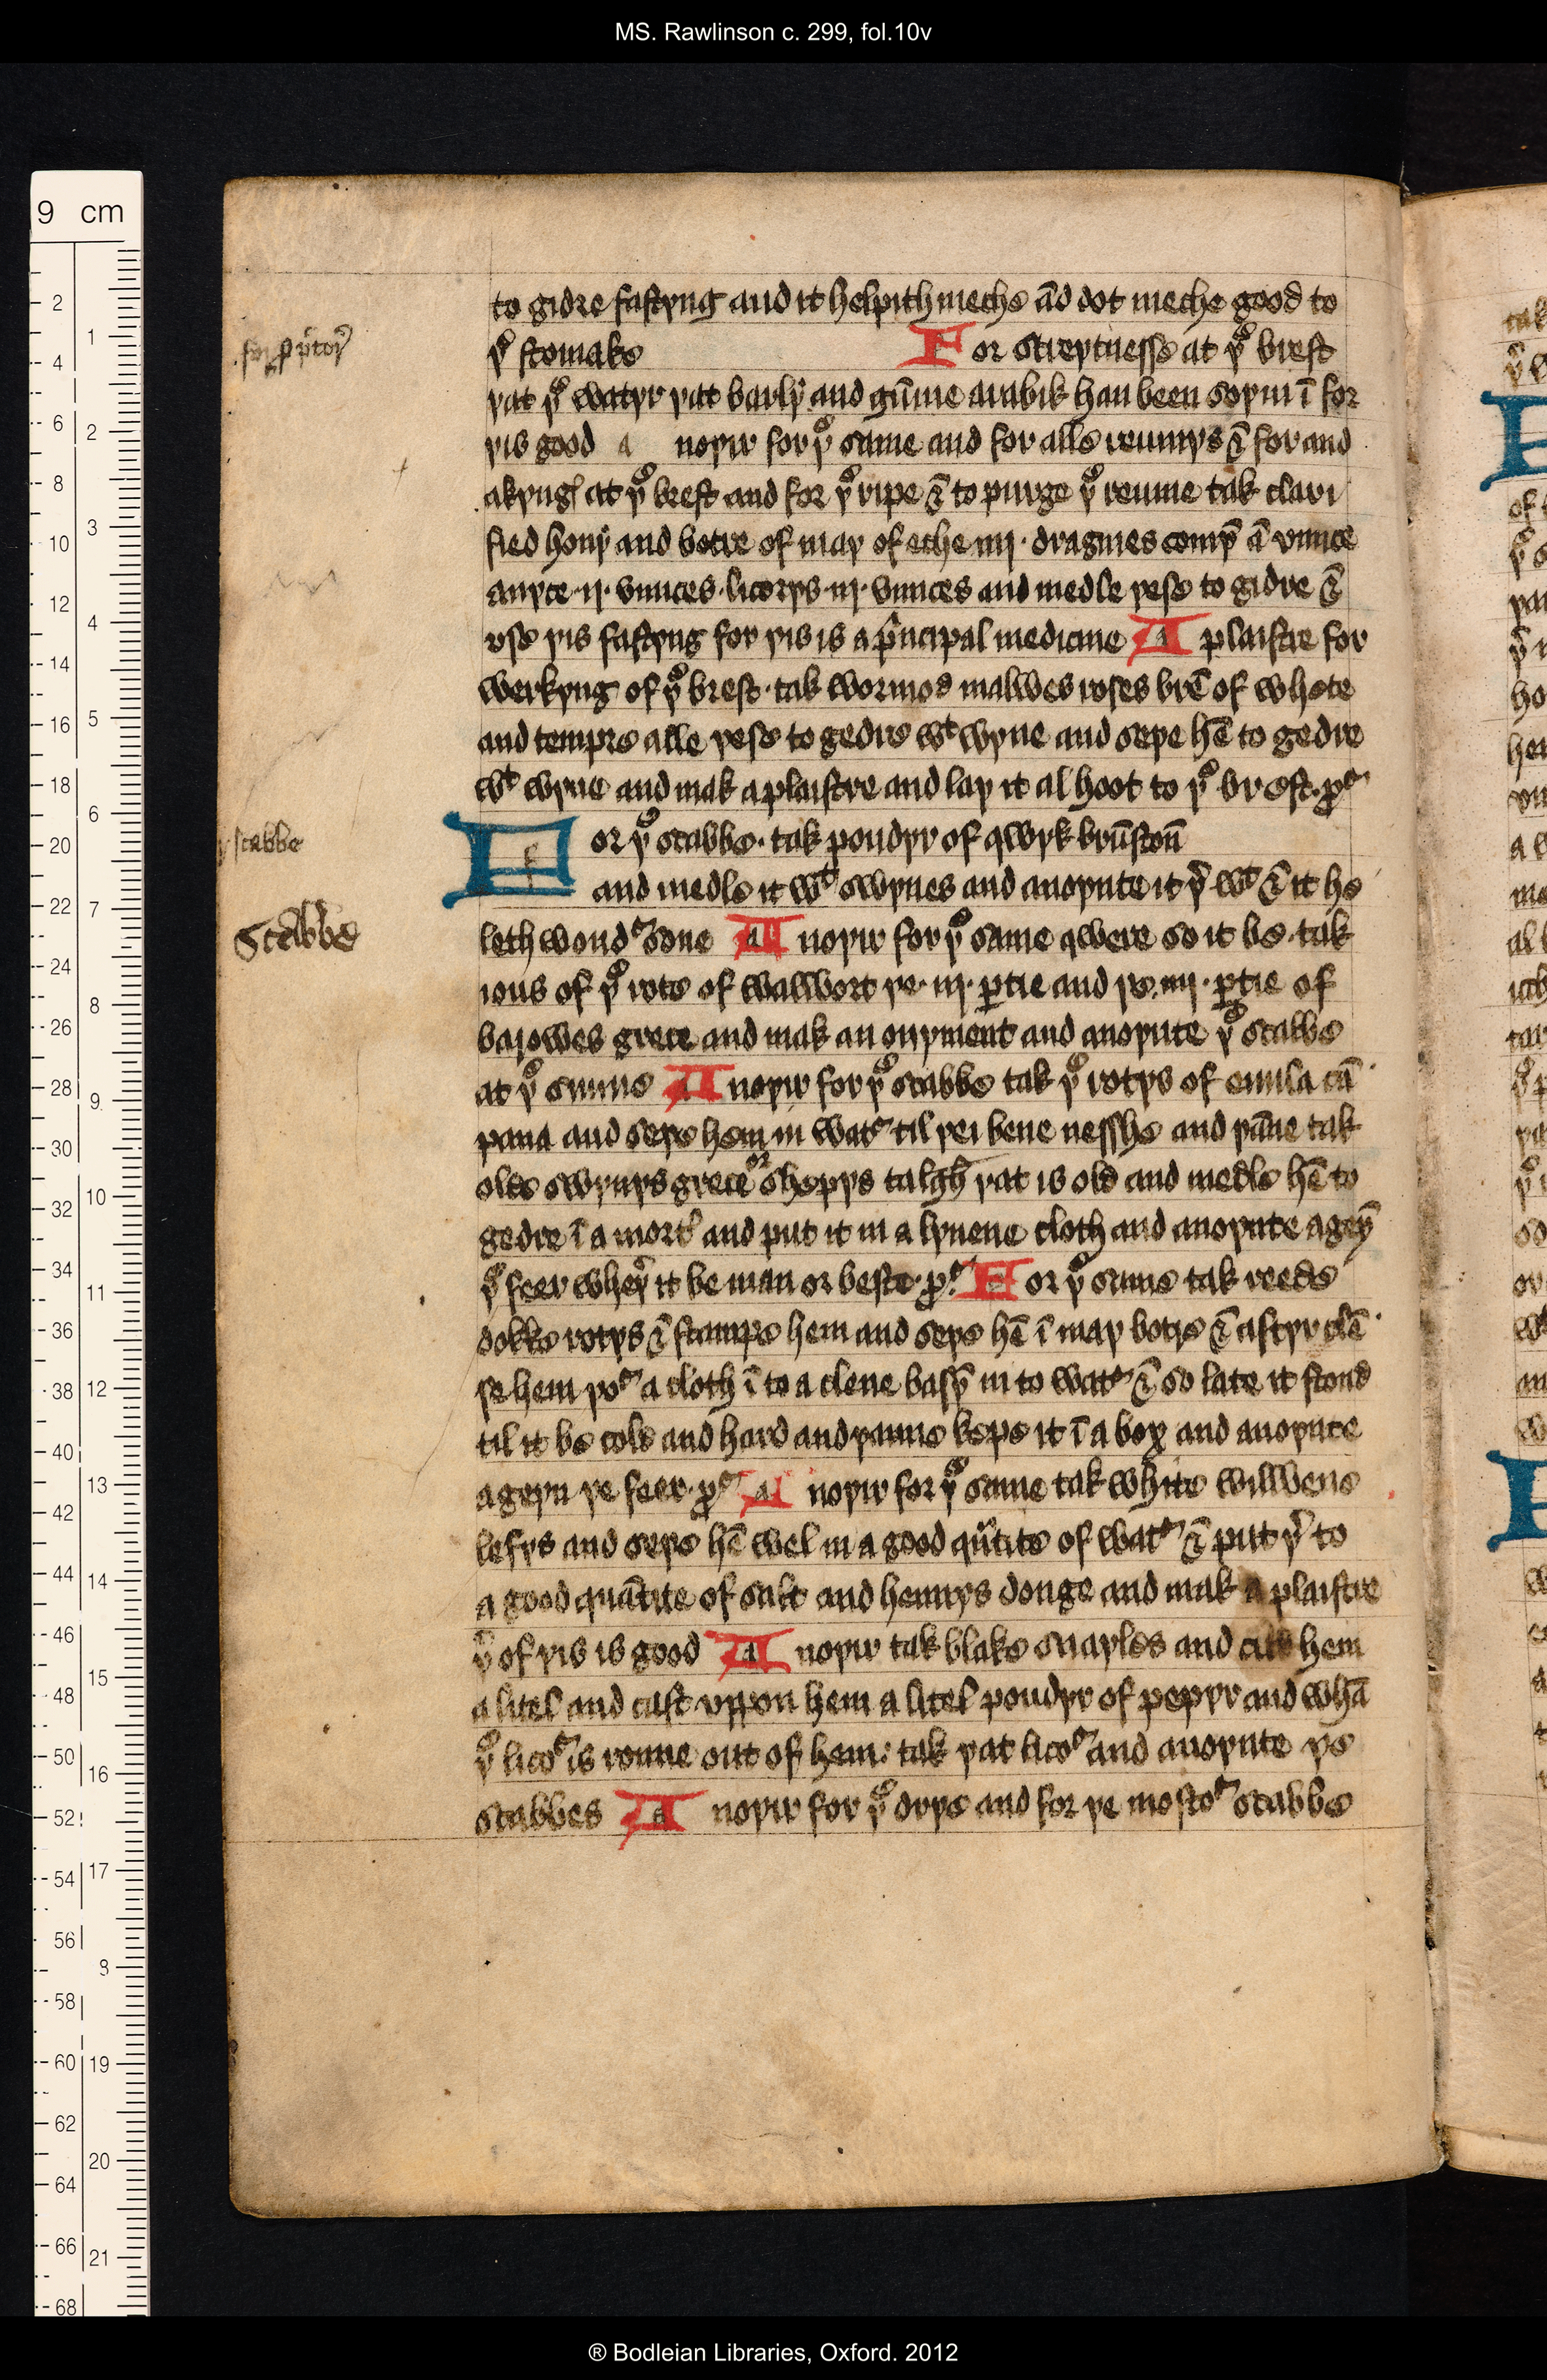 MS. Rawlinson c. 299, fol.10v
to gidre fastyng and it helpith meche ād dot meche good to
yͤ stomake For streytnesse at yͤ brest
yat yͤ watyr yat barly and gūme arabik han been soyin ī for
yis good a noyir for yͤ same and for alle reumys & for and
akyng at yͤ brest and for yͤ ripe & to purge yͤ reume tak clari
fied hony and botre of may of eche iiij · dragmes comȳ ā vnnce
anyce · ij · vnnces · licorys · iij · vnnces and medle yese to gidre &
vse yis fastyng for yis is a pͥncipal medicine A plaistre for
werkyng of yͤ brest · tak wormod malwes roses brē of whete
and tempre alle yese to gedre wᵗ wyne and seye hē to gedre
wᵗ wyne and mak a plaistre and lay it al hoot to yͤ brest · p
For yͤ scabbe · tak poudyr of qwyk brūstoū
and medle it wᵗ swynes and anoynte it yͤ wᵗ & it he
leth wondͬ sone A noyir for yͤ same qwere so it be · tak
ious of yͤ rote of walwort ye · iij · ꝑtie and ye · iiij · ꝑtie of
barowes grece and mak an onyment and anoynte yͤ scabbe
at yͤ sunne A noyir for yͤ scabbe tak yͤ rotys of enula cā
pana and seye hem in watͬ til yei bene nesshe and yāne tak
olde swynys grece or shepys talgh yat is old and medle hē to
gedre ī a mortͬ and put it in a lynene cloth and anoynte ageȳ
yͤ feer wheyͬ it be man or beste · p For yͤ same tak reede
dokke rotys & stampe hem and seye hē ī may botre & aftyr clē
se hem yoͬ a cloth ī to a clene basȳ in to watͬ & so late it stond
til it be cold and hard and yanne kepe it ī a box and anoynte
ageyn ye feer · p A noyir for yͤ same tak white wilwene
lefys and seye hē wel in a good quͣtite of watͬ & put yͬ to
a good quātite of salt and hennys donge and mak a plaistre
yͬ of yis is good A noyir tak blake snayles and cut hem
a litel and cast vppon hem a litel poudyr of pepyr and whā
yͤ licoͬ is ronne out of hem : tak yat licoͬ and anoynte ye
scabbes A noyir for yͤ drye and for ye mostoͬ scabbe
scabbe
Scabbe
® Bodleian Libraries, Oxford. 2012